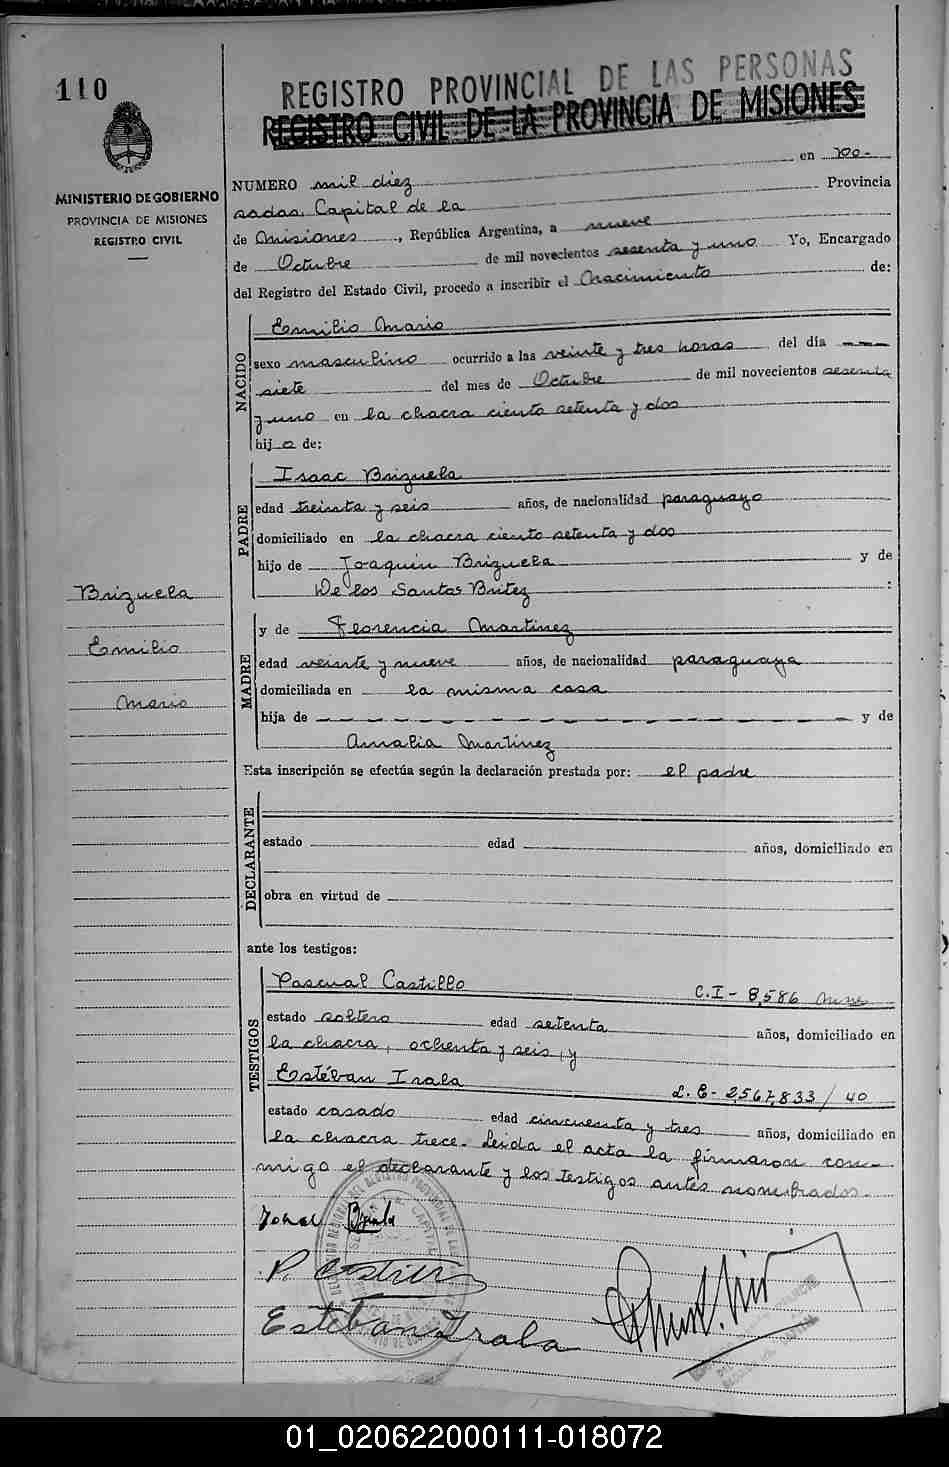 110
REGISTRO PROVINCIAL DE LAS PERSONAS
REGISTRO CIVIL DE LA PROVINCIA DE MISIONES
MINISTERIO DE GOBIERNO
PROVINCIA DE MISIONES
REGISTRO CIVIL
NUMERO mil diez en Po-
sadas, Capital de la Provincia
de Misiones, República Argentina, a nueve
de Octubre de mil novecientos sesenta y uno Yo, Encargado
del Registro del Estado Civil, procedo a inscribir el Nacimiento de:
NACIDO
Emilio Mario
sexo masculino ocurrido a las veinte y tres horas del día ---
siete del mes de Octubre de mil novecientos sesenta
y uno en la chacra ciento setenta y dos
hijo de:
PADRE
Isaac Brizuela
edad treinta y seis años, de nacionalidad paraguayo
domiciliado en la chacra ciento setenta y dos
hijo de Joaquin Brizuela y de
De los Santos Britez :
Brizuela
Emilio
Mario
MADRE
y de Florencia Martinez
edad veinte y nueve años, de nacionalidad paraguaya
domiciliada en la misma casa
hija de - - - - - - - - - - - - - - - - - y de
Amalia Martinez
Esta inscripción se efectúa según la declaración prestada por: el padre
DECLARANTE
estado edad años, domiciliado en
obra en virtud de
ante los testigos:
TESTIGOS
Pascual Castillo C.I- 8,586
estado soltero edad setenta años, domiciliado en
la chacra, ochenta y seis, y
Estéban Irala L.E- 2,567,833/40
estado casado edad cincuenta y tres años, domiciliado en
la chacra trece. Leida el acta la firmaron con-
migo el declarante y los testigos antes nombrados.
P. Castillo
Esteban Irala
01_020622000111-018072